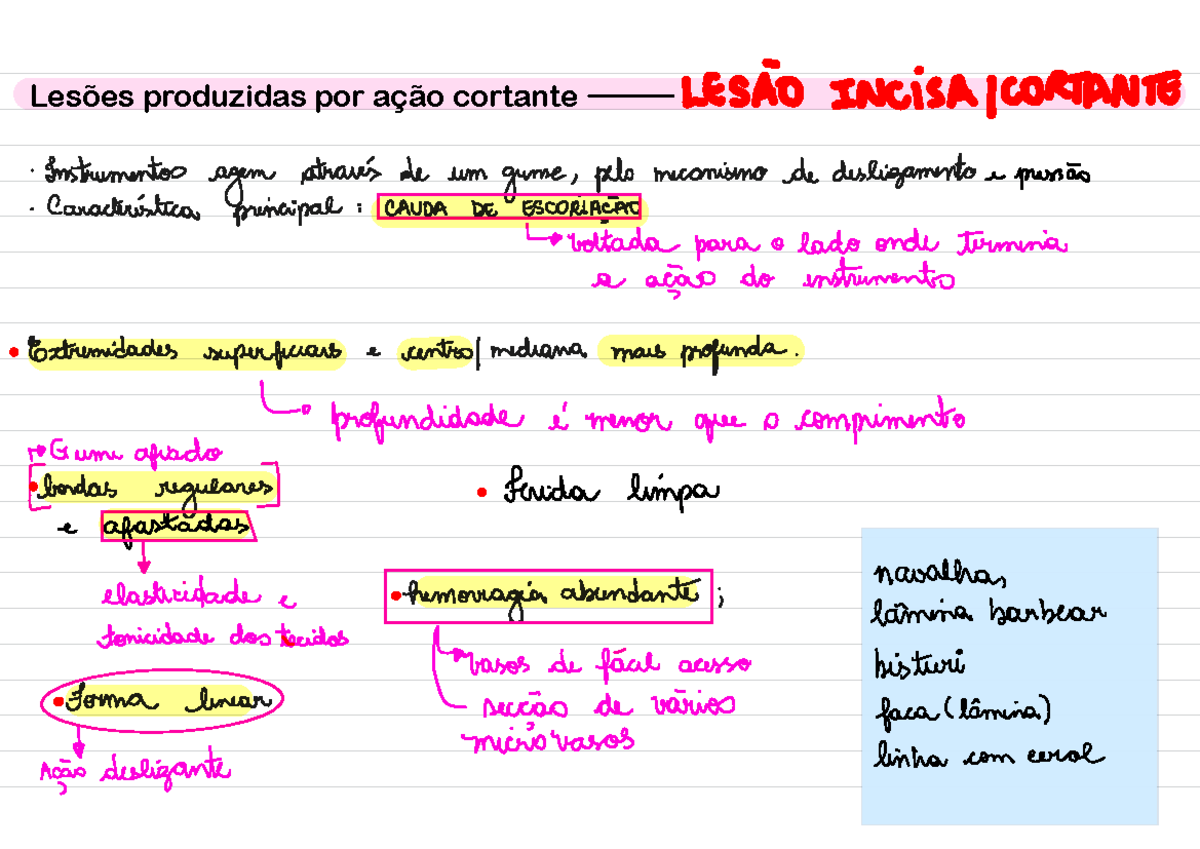 Lesões produzidas por ação cortante — LESÃO INCISA|CORTANTE
· Instrumentos agem através de um gume, pelo mecanismo de deslizamento e pressão
· Característica principal: CAUDA DE ESCORIAÇÃO
voltada para o lado onde termina
a ação do instrumento
• Extremidades superficiais e centro/mediana mais profunda.
profundidade é menor que o comprimento
Gume afiado
• bordas regulares
e afastadas
elasticidade e
tonicidade dos tecidos
• Forma linear
Ação deslizante
• Ferida limpa
• hemorragia abundante;
vasos de fácil acesso
secção de vários
microvasos
navalha,
lâmina barbear
bisturi
faca (lâmina)
linha com cerol